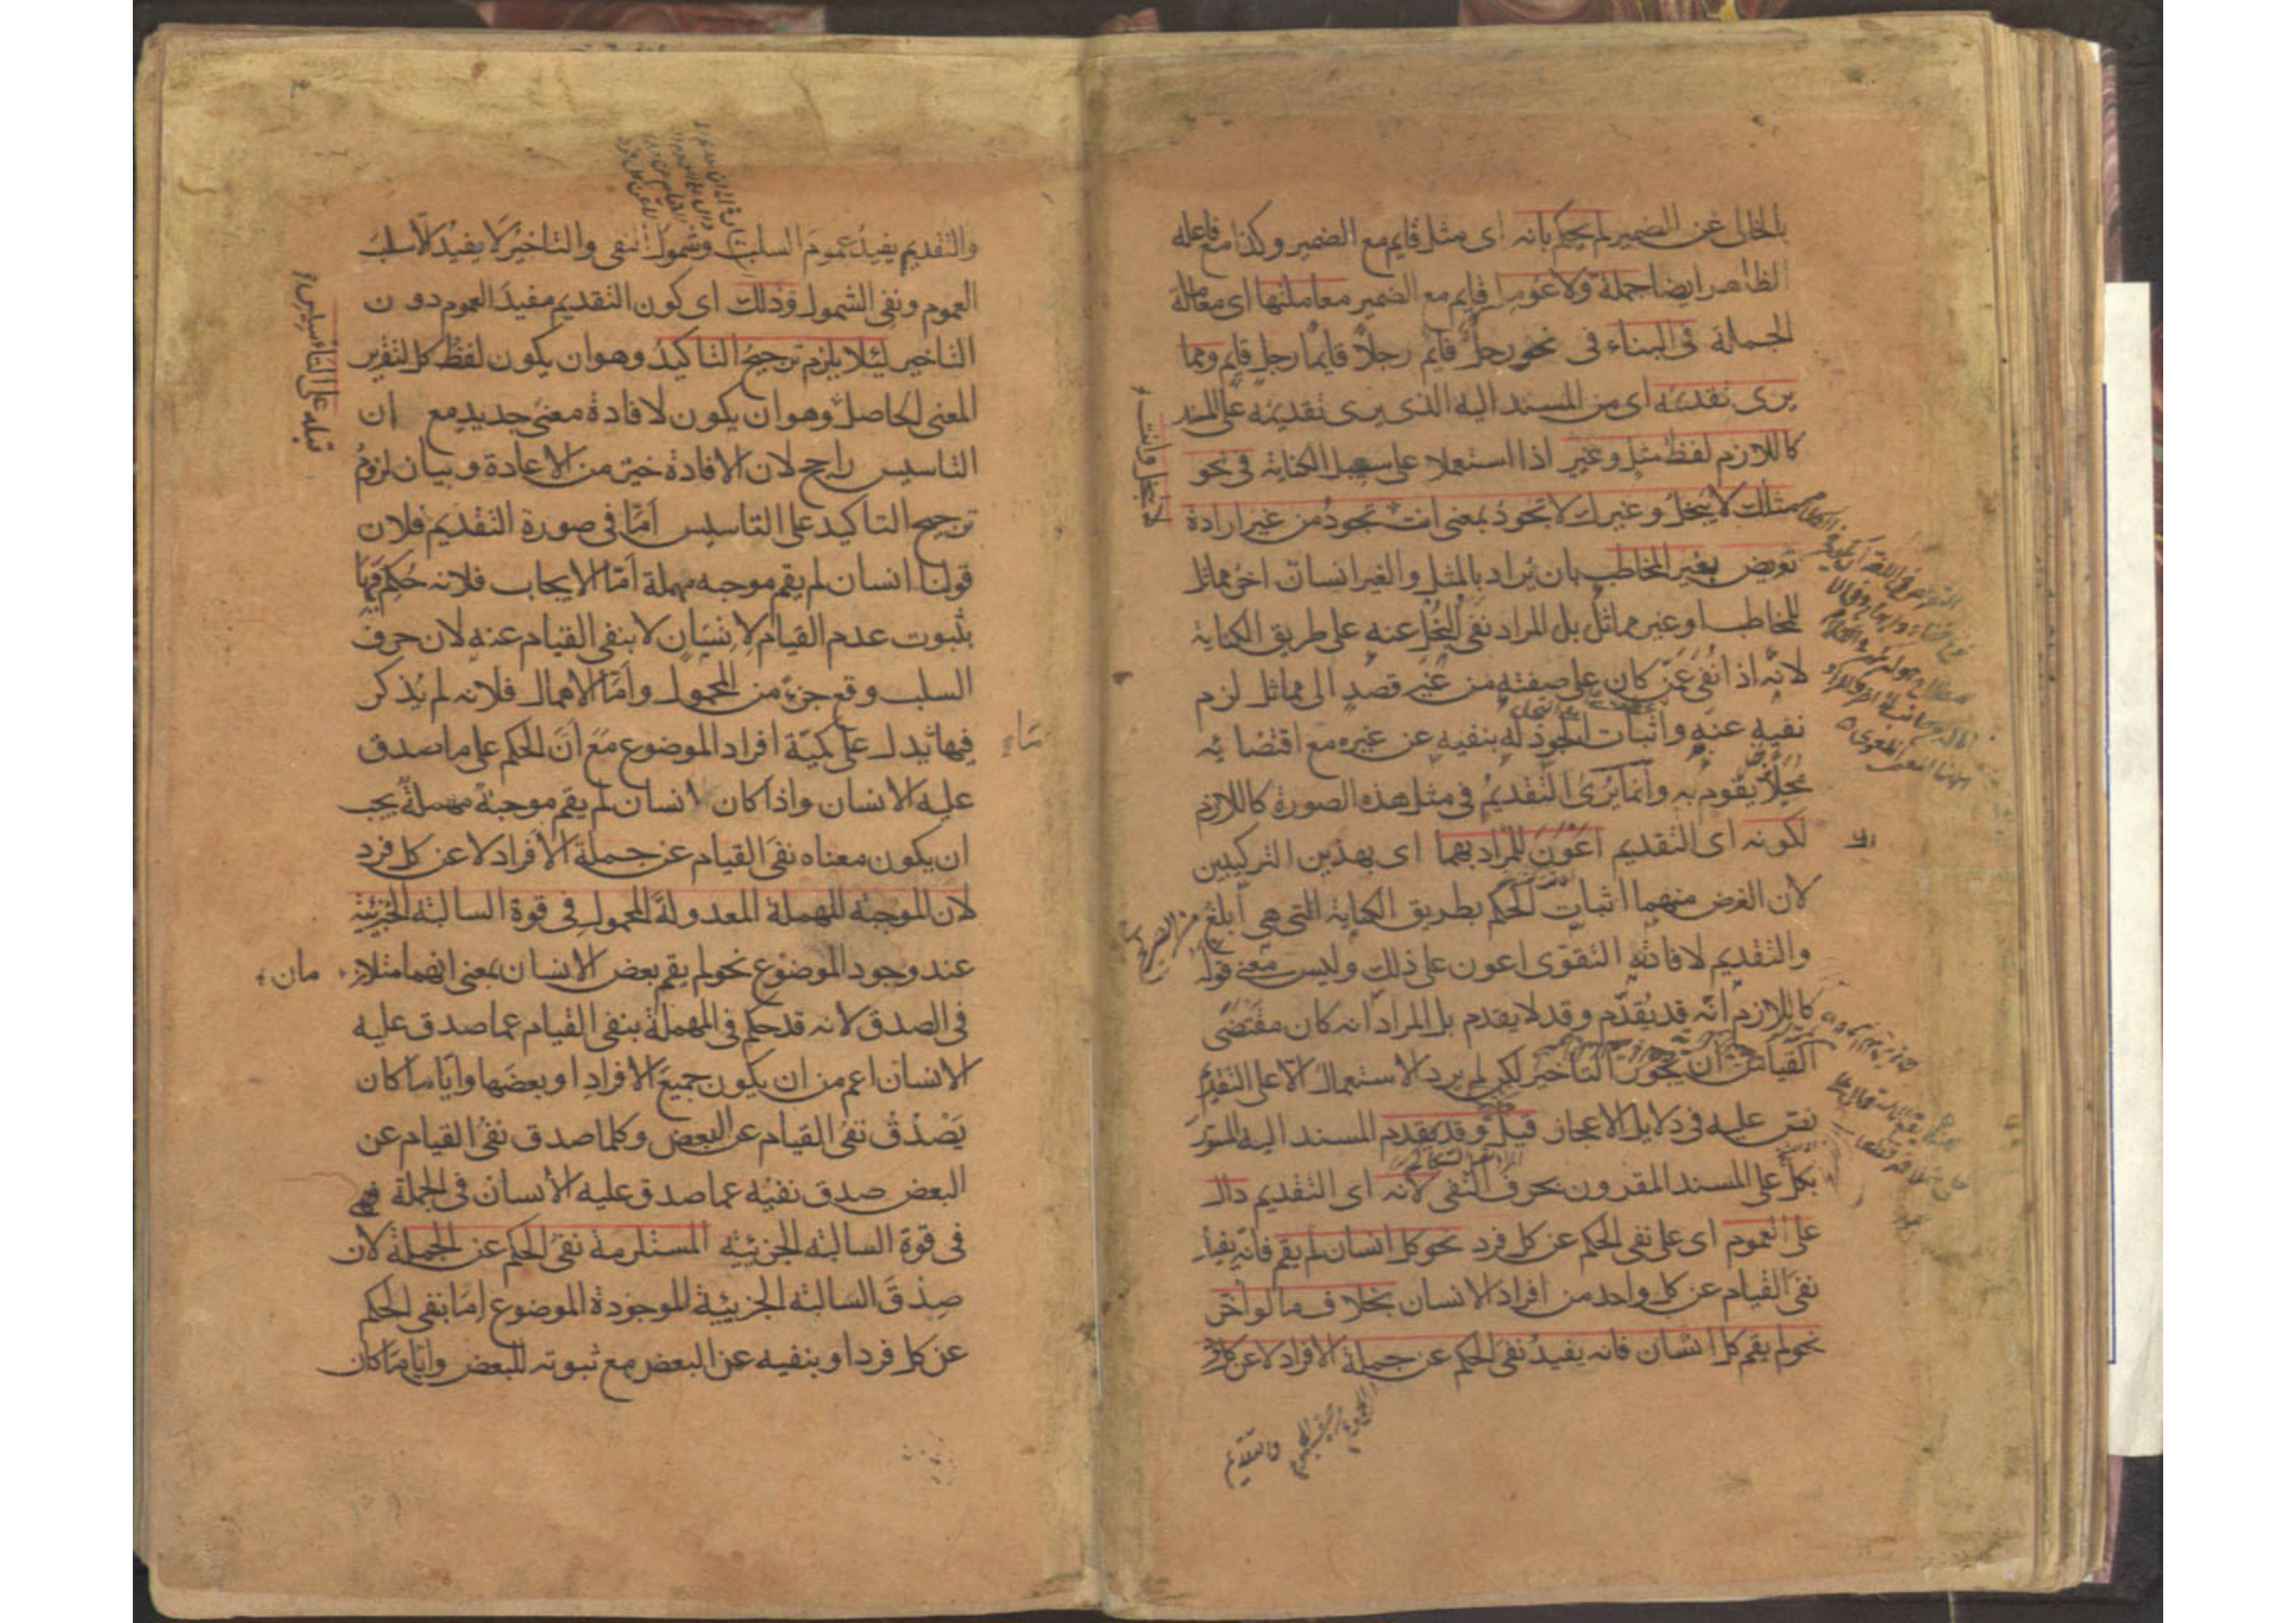 بالخالى عن الضمير لم يحكم بانه اى مثل قايم مع الضمير وكذا مع فاعله
الظاهر ايضا جملة ولا عومل قايم مع الضمير معاملتها اى معاملة
الجملة فى البناء فى نحو رجل قايم رجلا قايما رجل قايم ومما
يرى تقديمه اى من المسند اليه الذى يرى تقديمه على المسند
كاللازم لفظ مثل وغير اذا استعملا على سبيل الكناية فى نحو
مثلك لا يبخل وغيرك لا يجود بمعنى انت تجود من غير ارادة
تعريض بغير المخاطب بان يراد بالمثل والغير انسان اخر مماثل
للمخاطب او غير مماثل بل المراد نفى البخل عنه على طريق الكناية
لانه اذا نفى عمن كان على صفته من غير قصد الى مماثل لزم
نفيه عنه واثبات الجود له بنفيه عن غيره مع اقتضائه
محلا يقوم به وانما يرى التقديم فى مثل هذه الصورة كاللازم
لكونه اى التقديم اعون للمراد بهما اى بهذين التركيبين
لان الغرض منهما اثبات الحكم بطريق الكناية التى هى ابلغ من الصريح
والتقديم لافادته التقوى اعون على ذلك وليس معنى قوله
كاللازم انه قد يقدم وقد لا يقدم بل المراد انه كان مقتضى
القياس ان يجوز التاخير لكن لم يرد الاستعمال الا على التقديم
نص عليه فى دلايل الاعجاز قيل وقد يقدم المسند اليه المسور
بكل على المسند المقرون بحرف النفى لانه اى التقديم دال
على العموم اى على نفى الحكم عن كل فرد نحو كل انسان لم يقم فانه يفيد
نفى القيام عن كل واحد من افراد الانسان بخلاف ما لو اخر
نحو لم يقم كل انسان فانه يفيد نفى الحكم عن جملة الافراد لا عن كل فرد
والتقديم
لا تبخل وانت
والتقديم يفيد عموم السلب وشمول النفى والتاخير لا يفيد الا سلب
العموم ونفى الشمول وذلك اى كون التقديم مفيد العموم دون
التاخير لئلا يلزم ترجيح التاكيد وهو ان يكون لفظ كل لتقرير
المعنى الحاصل وهو ان يكون لافادة معنى جديد مع ان
التاسيس راجح لان الافادة خير من الاعادة وبيان لزوم
ترجيح التاكيد على التاسيس اما فى صورة التقديم فلان
قولنا انسان لم يقم موجبه مهملة اما الايجاب فلانه حكم فيها
بثبوت عدم القيام لانسان لا بنفى القيام عنه لان حرف
السلب وقع جزء من المحمول واما الاهمال فلانه لم يذكر
فيها يدل على كمية افراد الموضوع مع ان الحكم على ما صدق
عليه الانسان واذا كان انسان لم يقم موجبة مهملة يجب
ان يكون معناه نفى القيام عن جملة الافراد لا عن كل فرد
لان الموجبة المهملة المعدولة المحمول فى قوة السالبة الجزئية
عند وجود الموضوع نحو لم يقم بعض الانسان بمعنى انهما متلاز مان
فى الصدق لانه قد حكم فى المهملة بنفى القيام عما صدق عليه
الانسان اعم من ان يكون جميع الافراد او بعضها وايا ما كان
يصدق نفى القيام عن البعض وكلما صدق نفى القيام عن
البعض صدق نفيه عما صدق عليه الانسان فى الجملة فهى
فى قوة السالبة الجزئيه المستلزمة نفى الحكم عن الجملة لان
صدق السالبة الجزئية الموجودة الموضوع اما بنفى الحكم
عن كل فرد او بنفيه عن البعض مع ثبوته للبعض وايا ما كان
على التاسيس
ما